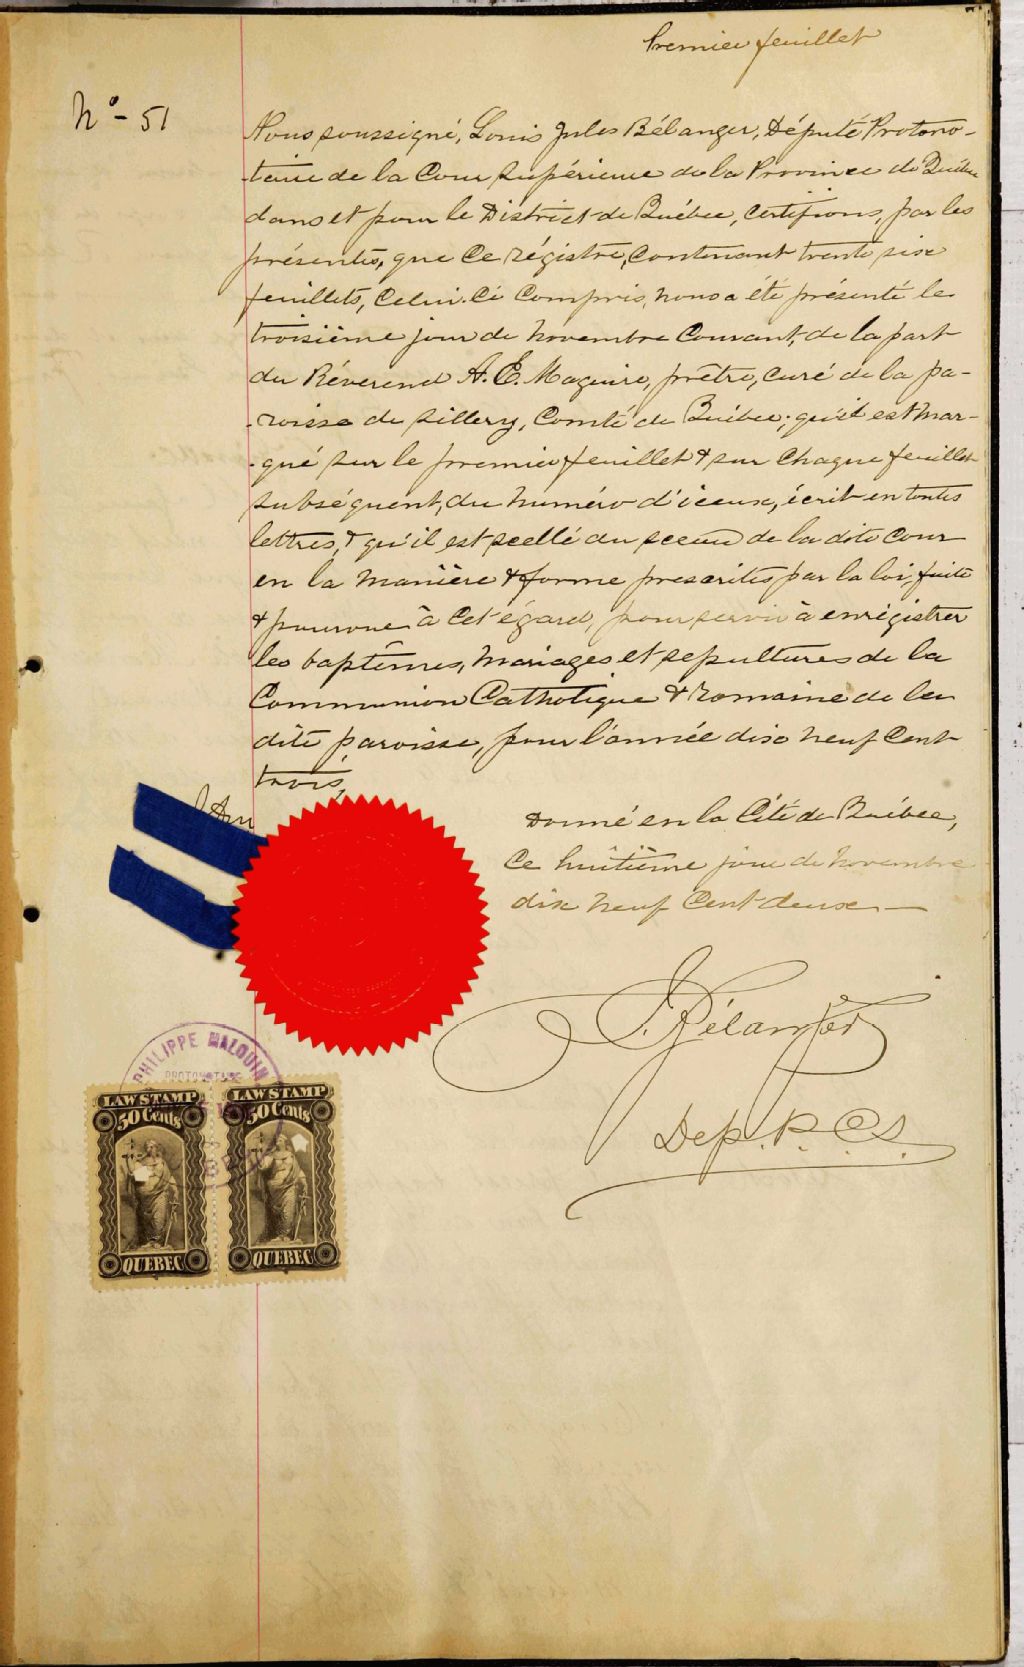 Premier feuillet
No - 51
Nous soussigné, Louis Jules Bélanger, Député Protono-
-taire de la Cour Supérieure de la Province de Québec
dans et pour le District de Québec, certifions, par les
présentes, que ce régistre, contenant trente six
feuillets, celui-ci compris, nous a été présenté le
troisième jour de novembre courant, de la part
du Révérend A. E. Maguire, prêtre, curé de la pa-
-roisse de Sillery, Comté de Québec; qu'il est mar-
-qué sur le premier feuillet & sur chaque feuillet
subséquent, du numéro d'iceux, écrit en toutes
lettres, & qu'il est scellé du sceau de la dite Cour
en la manière & forme prescrites par la loi, faite
& pourvue à cet égard, pour servir à enrégistrer
les baptêmes, mariages et sepultures de la
Communion Catholique & Romaine de la
dite paroisse, pour l'année dix neuf cent
trois,
Donné en la Cité de Québec,
ce huitième jour de novembre
dix neuf cent deux —
J. Bélanger
Dep. P. C. S.
PHILIPPE MALOUIN
PROTONOTAIRE
LAW STAMP LAW STAMP
50 Cents 50 Cents
QUEBEC QUEBEC